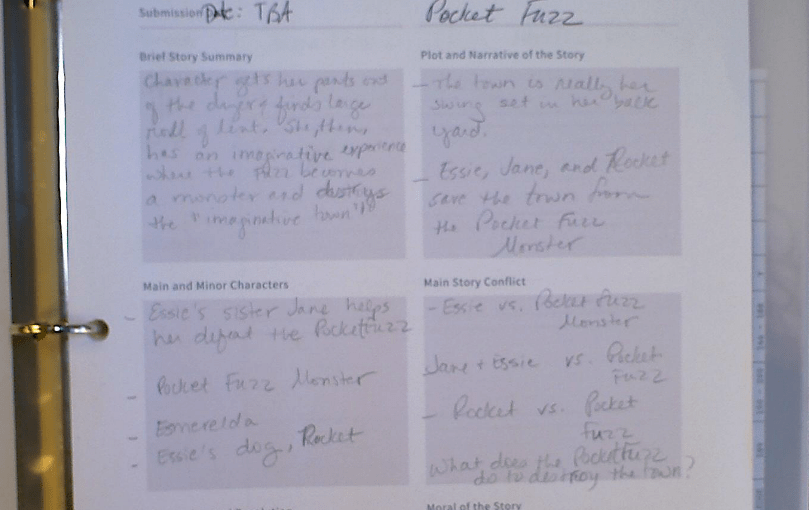 Submission Date: TBA
Pocket Fuzz
Brief Story Summary
Character gets her pants out
of the dryer & finds large
roll of lint. She, then,
has an imaginative experience
where the fuzz becomes
a monster and destroys
the "imaginative town"!
Plot and Narrative of the Story
- The town is really her
swing set in her back
yard.
- Essie, Jane, and Rocket
save the town from
the Pocket Fuzz
Monster
Main and Minor Characters
- Essie's sister Jane helps
her defeat the Pocket Fuzz
- Pocket Fuzz Monster
- Esmerelda
- Essie's dog, Rocket
Main Story Conflict
- Essie vs. Pocket Fuzz
Monster
Jane + Essie vs. Pocket
Fuzz
- Rocket vs. Pocket
Fuzz
What does the Pocket Fuzz
do to destroy the town?
Moral of the Story